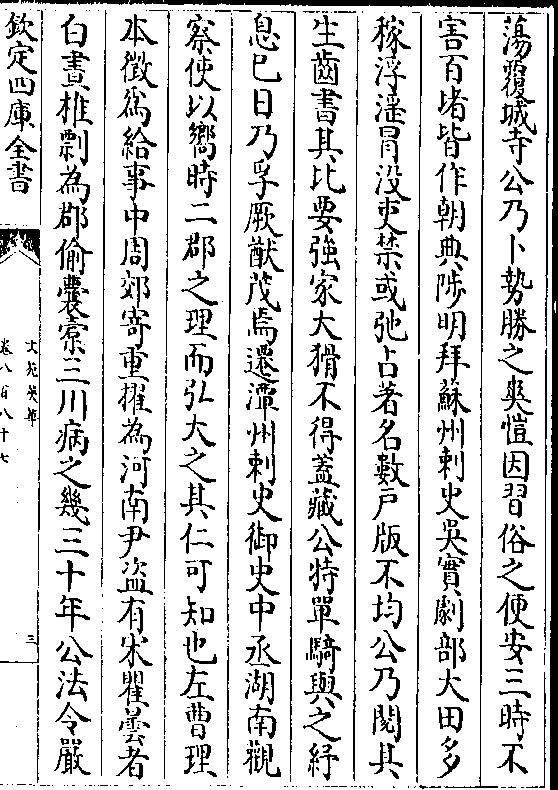 蕩覆城寺公乃卜勢勝之爽愷因習俗之便安三時不
害百堵皆作朝典陟明拜蘇州刺史吳實劇部大田多
稼浮淫冒没吏禁或弛占著名數戸版不均公乃閱其
生齒書其比要強家大猾不得蓋藏公特單騎與之紓
息巳日乃孚厥猷茂焉遷潭州刺史御史中丞湖南觀
察使以嚮時二郡之理而弘大之其仁可知也左曹理
本徵為給事中周郊寄重擢為河南尹盜有宋瞿曇者
白晝椎剽為郡偷囊橐三川病之幾三十年公法令嚴
欽定四庫全書
文苑英華
卷八百八十七
三